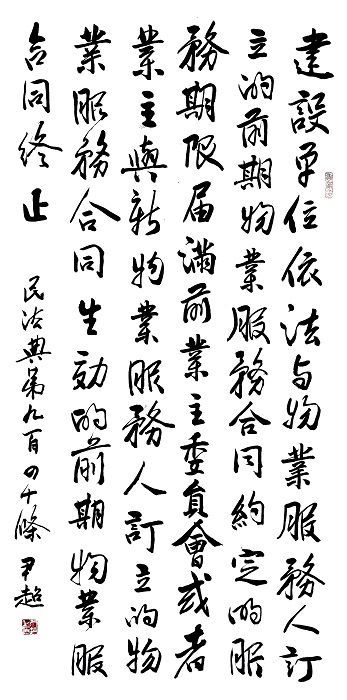 建設單位依法与物業服務人訂
立的前期物業服務合同約定的服
務期限届滿前業主委員會或者
業主與新物業服務人訂立的物
業服務合同生効的前期物業服
合同終止
民法典第九百四十條 尹超